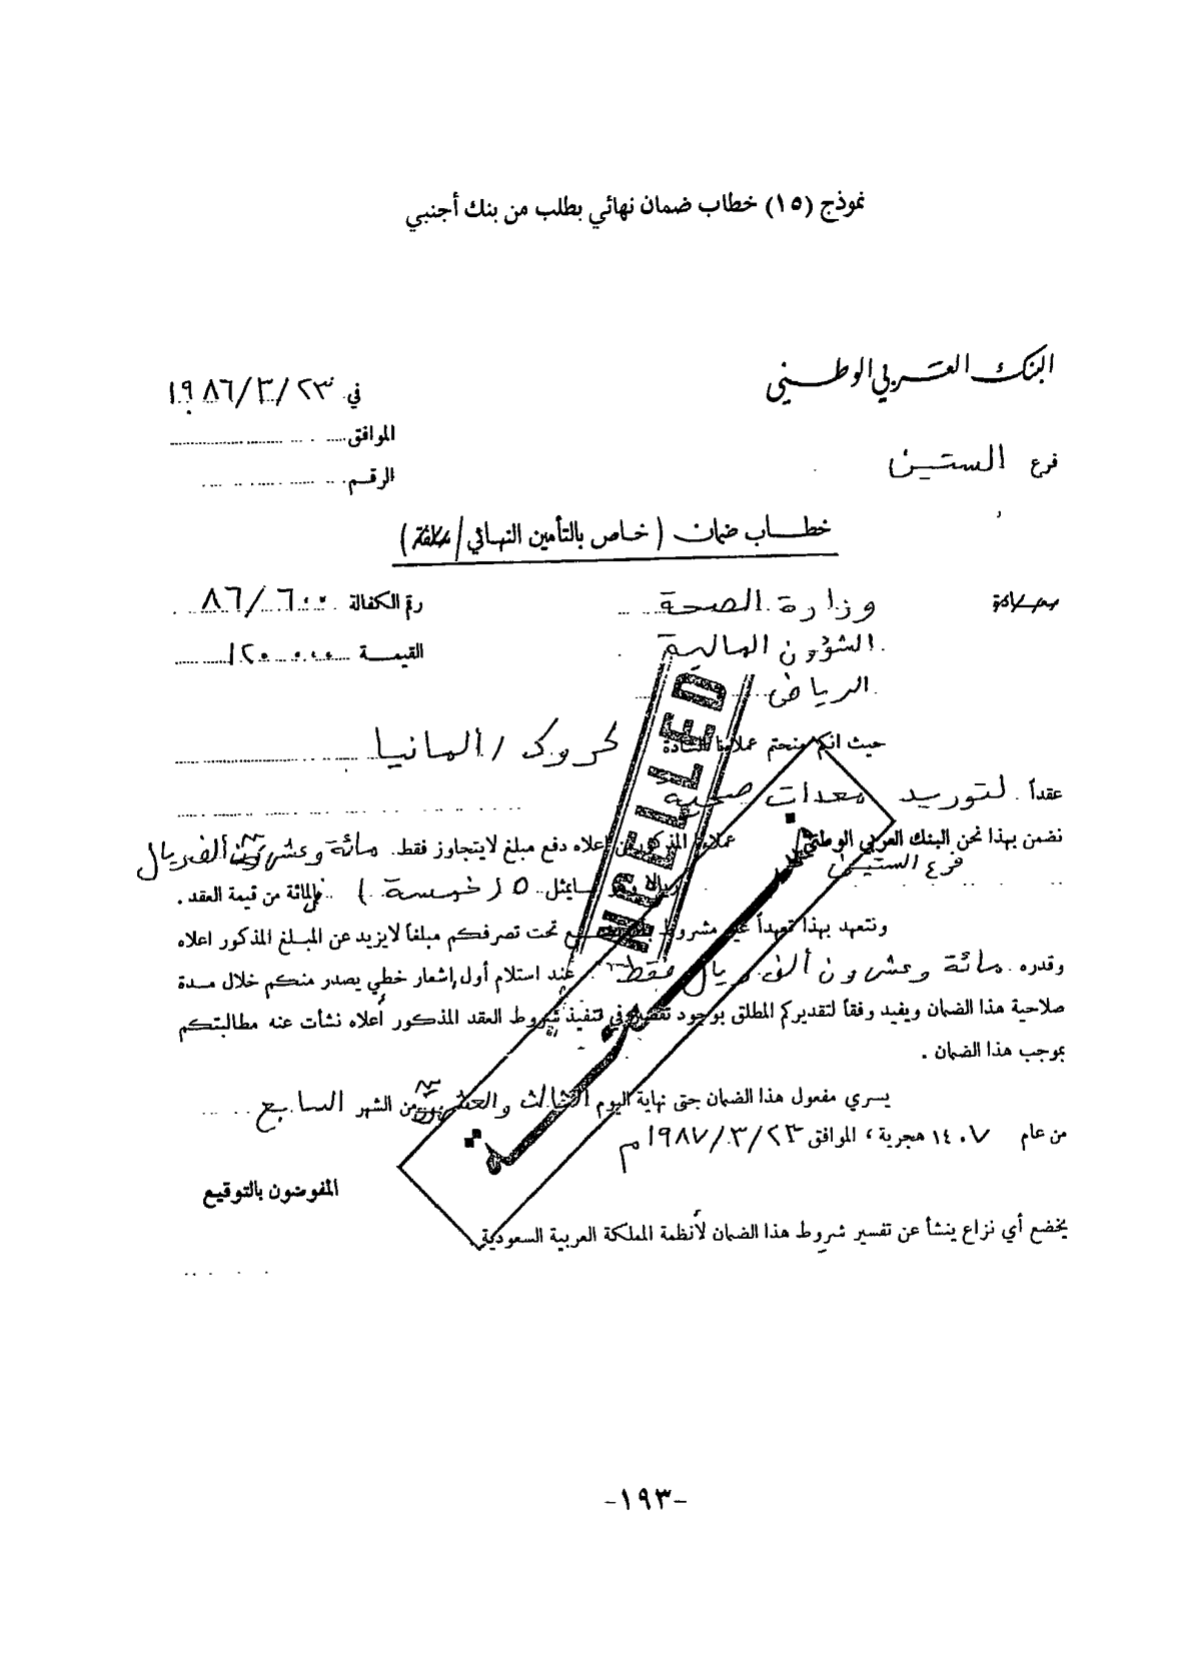 نموذج (١٥) خطاب ضمان نهائي بطلب من بنك أجنبي
البنك العربي الوطني
في ٢٣/٣/١٩٨٦
الموافق
فرع الستين
الرقم
خطاب ضمان (خاص بالتأمين النهائي/سلفة)
وزارة الصحة
رقم الكفالة ٨٦/٦٠٠
الشؤون المالية
القيمة ١٢٠٠٠٠
الرياض
حيث انكم منحتم عملاءنا السادة كروك/المانيا
عقداً لتوريد معدات صحية
نضمن بهذا نحن البنك العربي الوطني عملاءنا المذكورين اعلاه دفع مبلغ لايتجاوز فقط. مائة وعشرون ألف ريال
فرع الستين
ريالا وهو مايمثل ٥ (خمسة) بالمائة من قيمة العقد .
ونتعهد بهذا تعهداً غير مشروط تحت تصرفكم مبلغاً لايزيد عن المبلغ المذكور اعلاه
وقدره مائة وعشرون ألف ريال فقط عند استلام أول إشعار خطي يصدر منكم خلال مدة
صلاحية هذا الضمان ويفيد وفقاً لتقديركم المطلق بوجود تقصير في تنفيذ شروط العقد المذكور أعلاه نشأت عنه مطالبتكم
بموجب هذا الضمان .
يسري مفعول هذا الضمان حتى نهاية اليوم الثالث والعشرون من الشهر السابع
من عام ١٤٠٧ هجرية ، الموافق ٢٣/٣/١٩٨٧م
المفوضون بالتوقيع
يخضع أي نزاع ينشأ عن تفسير شروط هذا الضمان لأنظمة المملكة العربية السعودية
NCELLED
-١٩٣-